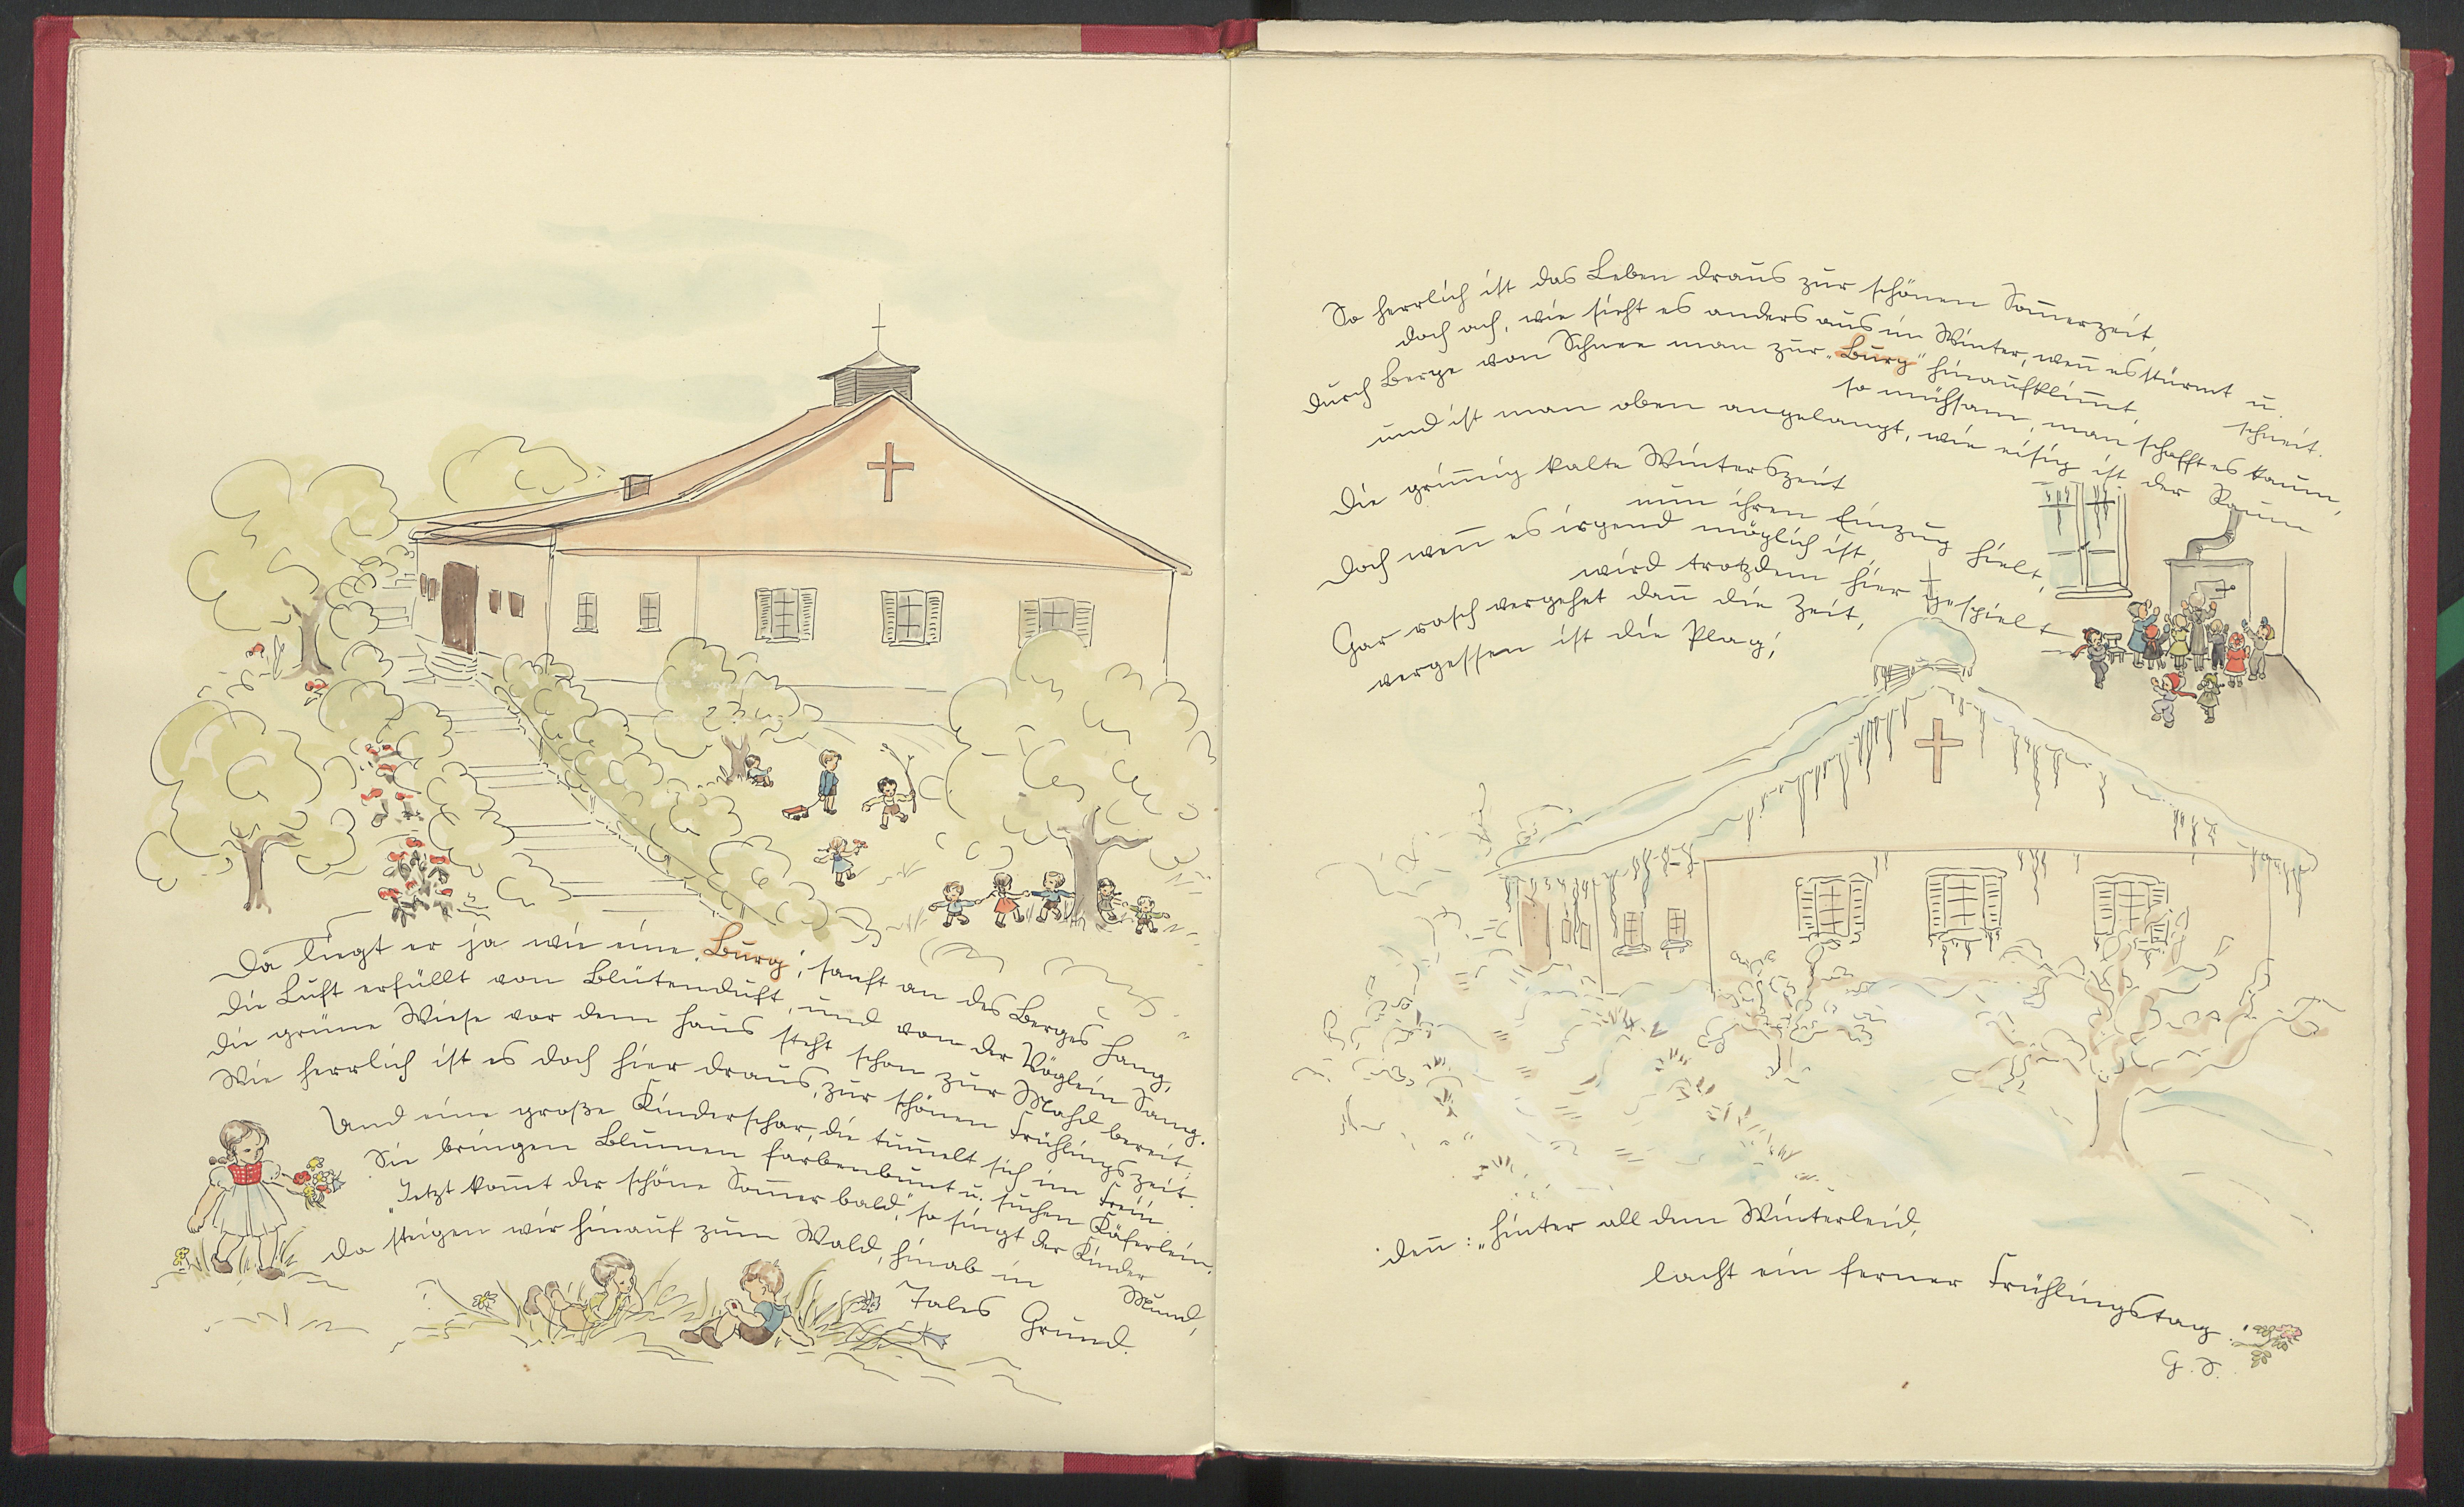 Da liegt er ja wie eine „Burg“, sanft an des Berges Hang,
die Luft erfüllt von Blütenduft, und von der Vöglein Sang.
die grüne Wiese vor dem Haus steht schon zur Mahd bereit.
Wie herrlich ist es doch hier draus, zur schönen Frühlingszeit.
Und eine große Kinderschar, die tum̄elt sich im Frein.
Sie bringen Blumen farbenbunt u. suchen Käferlein.
„Jetzt kom̄t der schöne Som̄er bald“, so singt der Kinder Mund,
da steigen wir hinauf zum Wald, hinab in
Tales Grund.
So herrlich ist das Leben draus zur schönen Som̄erzeit,
doch ach, wie sieht es anders aus im Winter, wen̄ es stürmt u. schneit.
durch Berge von Schnee man zur „Burg“ hinaufklim̄t,
so mühsam, man schafft es kaum,
und ist man oben angelangt, wie eisig ist der Raum
Die grim̄ig kalte Winterszeit
nun ihren Einzug hielt,
Doch wen̄ es irgend möglich ist,
wird trotzdem hier gespielt
Gar rasch vergehet dan̄ die Zeit,
vergessen ist die Plag;
den̄: „hinter all dem Winterleid,
lacht ein ferner Frühlingstag.“
G. S.